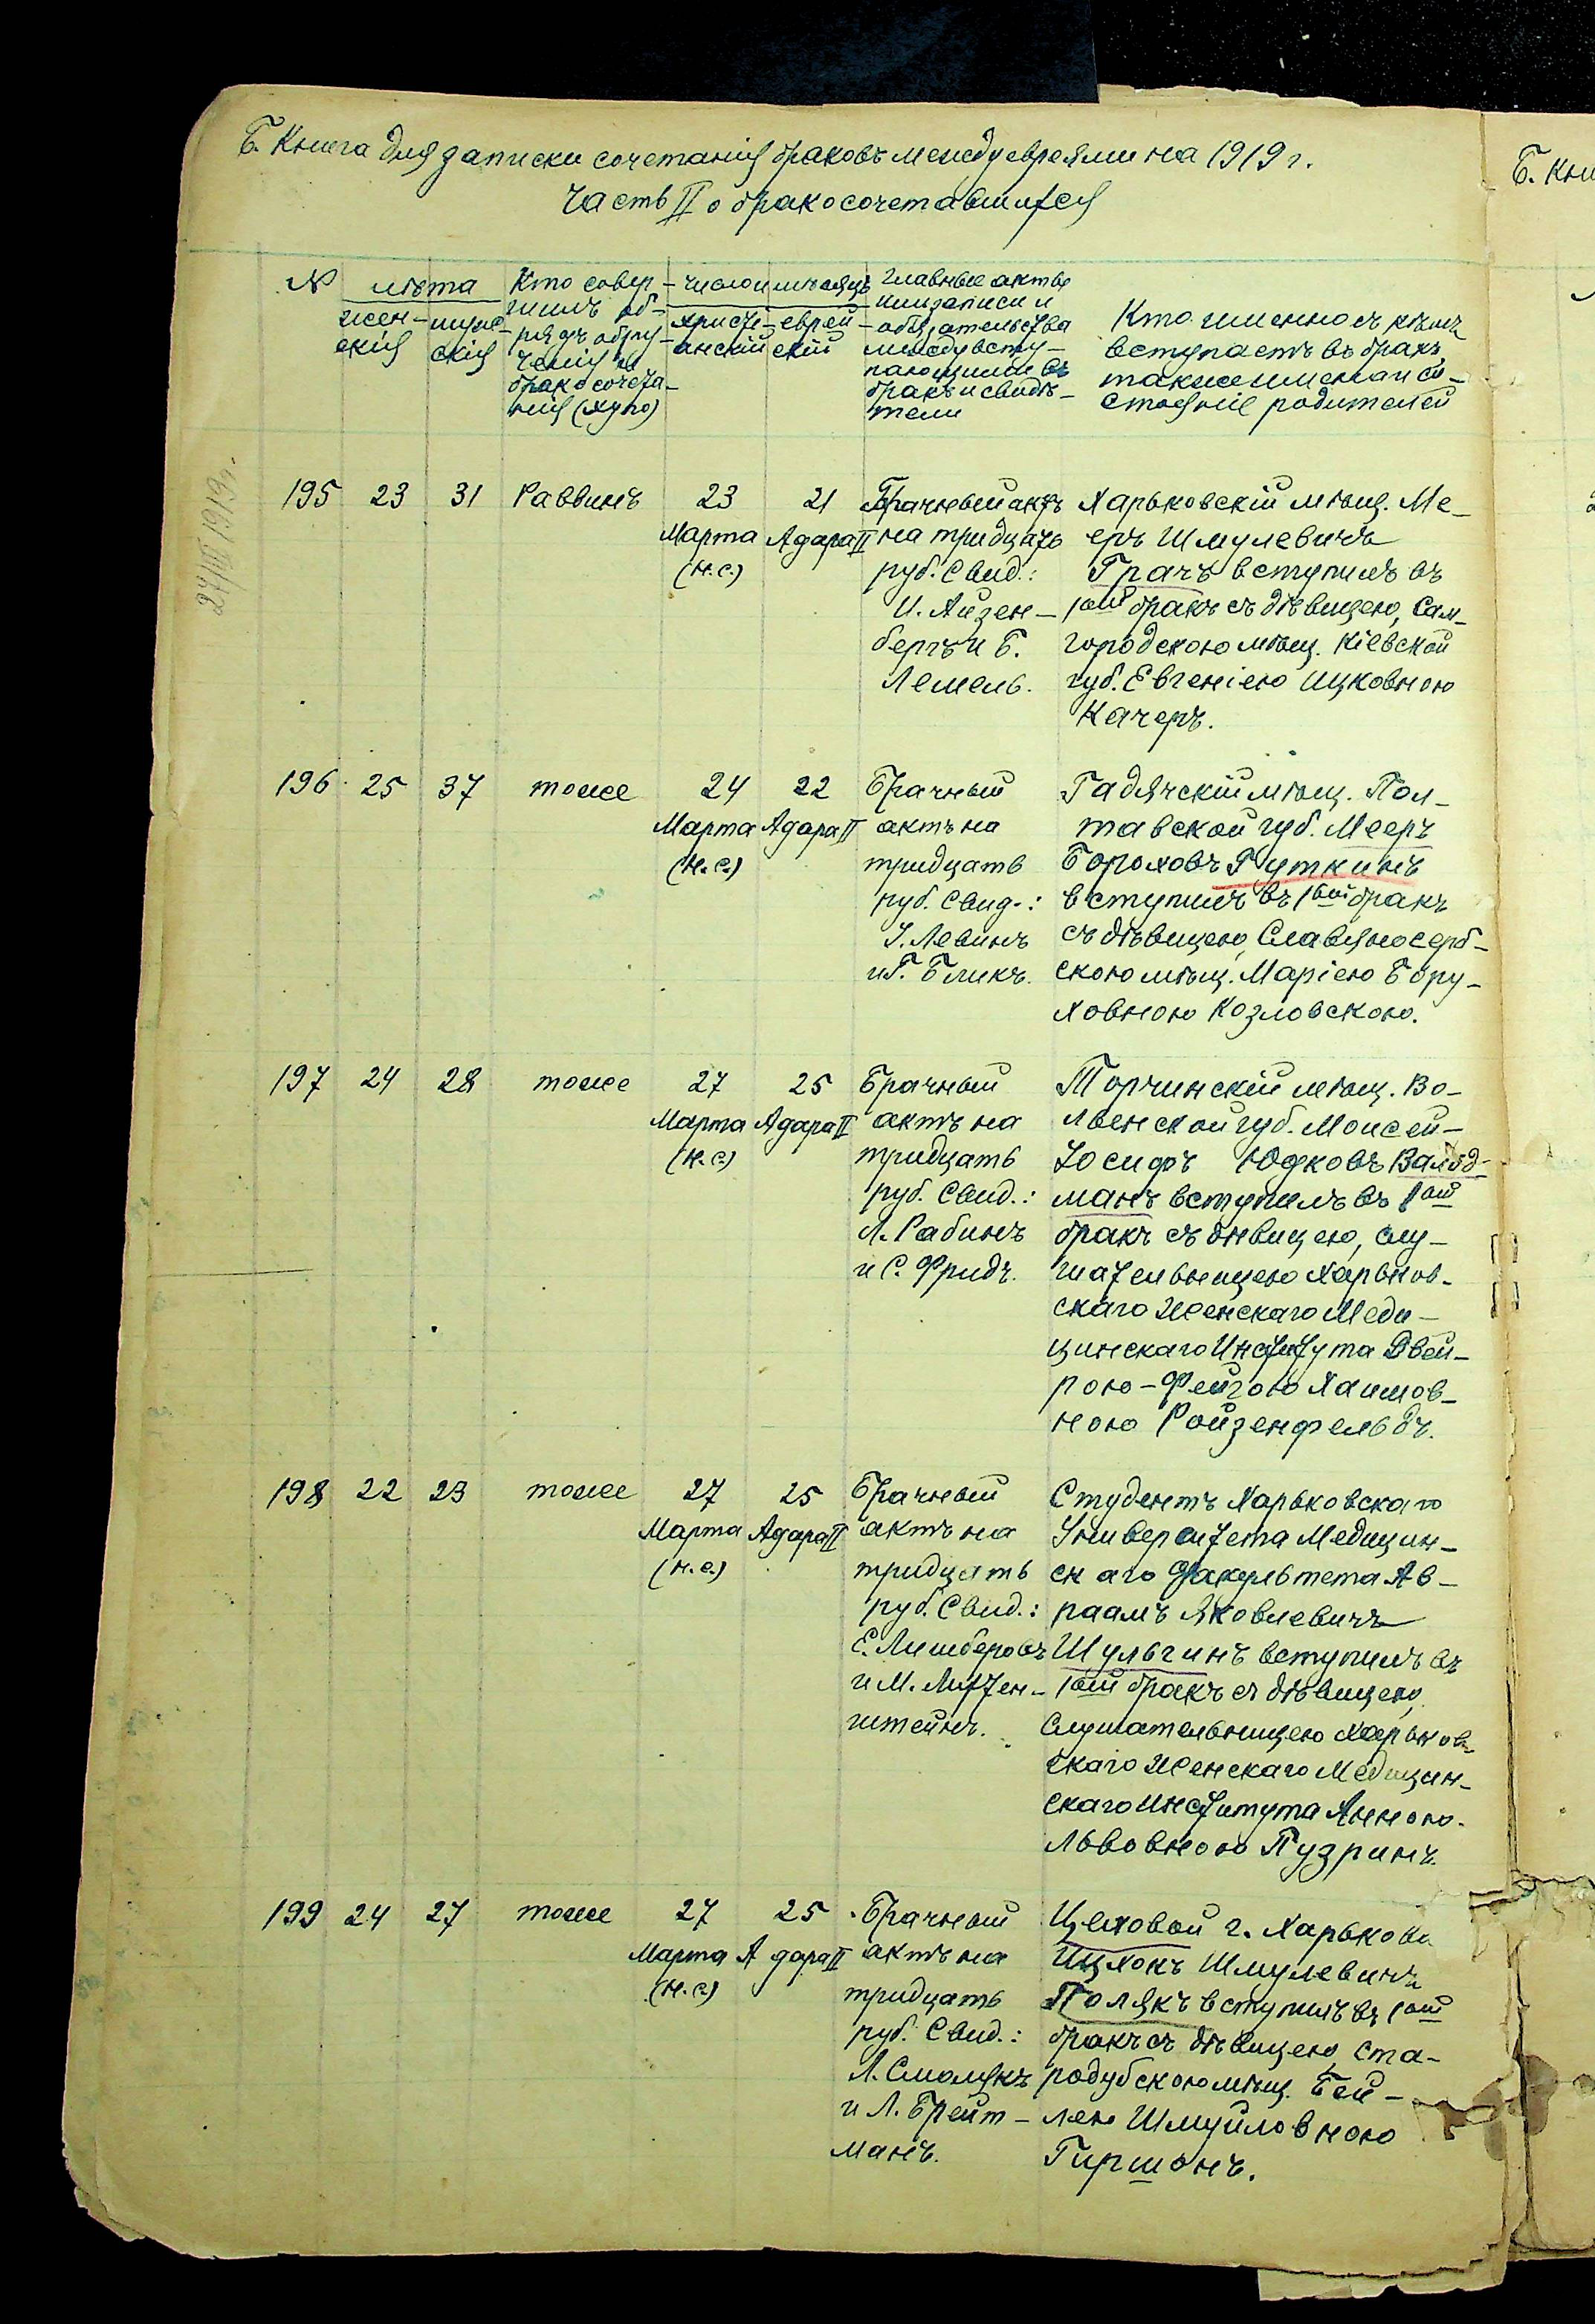 Б. Книга для записки сочетанія браковъ между евреями на 1919 г.
Часть II о бракосочетавшихся
№
лѣта
жен-
скія
муже-
скія
Кто совер-
шилъ об-
рядъ обру-
ченія и
бракосочета-
нія (хупо)
число и мѣсяцъ
христі-
анскій
еврей-
скій
Главные акты
или записи и
обязательства
между всту-
пающими въ
бракъ и свидѣ-
тели
Кто именно съ кѣмъ
вступаетъ въ бракъ,
также имена и со-
стояніе родителей
27/III 1919 г.
195
23
31
Раввинъ
23
Марта
(н.с.)
21
Адара II
Брачный актъ
на тридцать
руб. Свид.:
И. Айзен-
бергъ и Б.
Лемель.
Харьковскій мѣщ. Ме-
еръ Шмулевичъ
Грачъ вступилъ въ
1ый бракъ съ дѣвицею, Сам-
городскою мѣщ. Кіевской
губ. Евгеніею Ицковною
Качеръ.
196
25
37
тоже
24
Марта
(н.с.)
22
Адара II
Брачный
актъ на
тридцать
руб. Свид.:
І. Левинъ
и Г. Бликъ.
Гадячскій мѣщ. Пол-
тавской губ. Мееръ
Бороховъ Гуткинъ
вступилъ въ 1ый бракъ
съ дѣвицею, Славяносерб-
скою мѣщ. Маріею Бору-
ховною Козловскою.
197
24
28
тоже
27
Марта
(н.с.)
25
Адара II
Брачный
актъ на
тридцать
руб. Свид.:
Л. Рабинъ
и С. Фридъ.
Торчинскій мѣщ. Во-
лынской губ. Моисей-
Іосифъ Юдковъ Вальд-
манъ вступилъ въ 1ый
бракъ съ дѣвицею, слу-
шательницею Харьков-
скаго Женскаго Меди-
цинскаго Института Двей-
рою-Фейгою Хаимов-
ною Ройзенфельдъ.
198
22
23
тоже
27
Марта
(н.с.)
25
Адара II
Брачный
актъ на
тридцать
руб. Свид.:
Е. Лимберовъ
и М. Лихтен-
штейнъ.
Студентъ Харьковскаго
Университета Медицин-
скаго Факультета Ав-
раамъ Яковлевичъ
Шульгинъ вступилъ въ
1ый бракъ съ дѣвицею,
слушательницею Харьков-
скаго Женскаго Медицин-
скаго Института Анною
Львовною Пузринъ.
199
24
27
тоже
27
Марта
(н.с.)
25
Адара II
Брачный
актъ на
тридцать
руб. Свид.:
Л. Смолякъ
и Л. Брейт-
манъ.
Цеховой г. Харькова
Ицхокъ Шмулевичъ
Полякъ вступилъ въ 1ый
бракъ съ дѣвицею, Ста-
родубскою мѣщ. Бей-
лею Шмуйловною
Гиршонъ.
Б. Кни